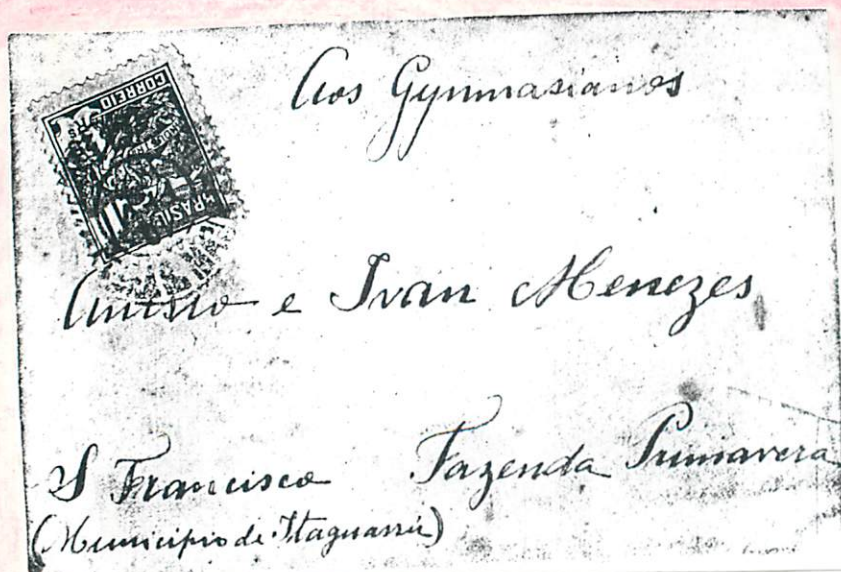 CORREIO
BRASIL
Aos Gymnasianos
Anisio e Ivan Menezes
S Francisco Fazenda Primavera
(Municipio de Itaguassú)